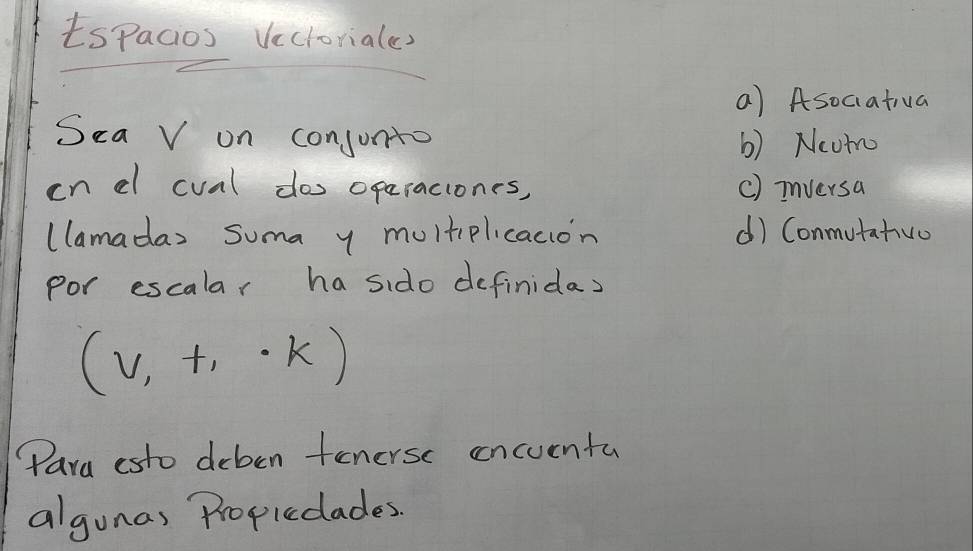 Espacios Vectoriales
Sea V un conjunto
en el cual dos operaciones,
llamadas suma y multiplicación
por escalar ha sido definidas
(V, +, · K)
Para esto deben tenerse encuenta
algunas Propiedades.
a) Asociativa
b) Neutro
c) inversa
d) Conmutativo